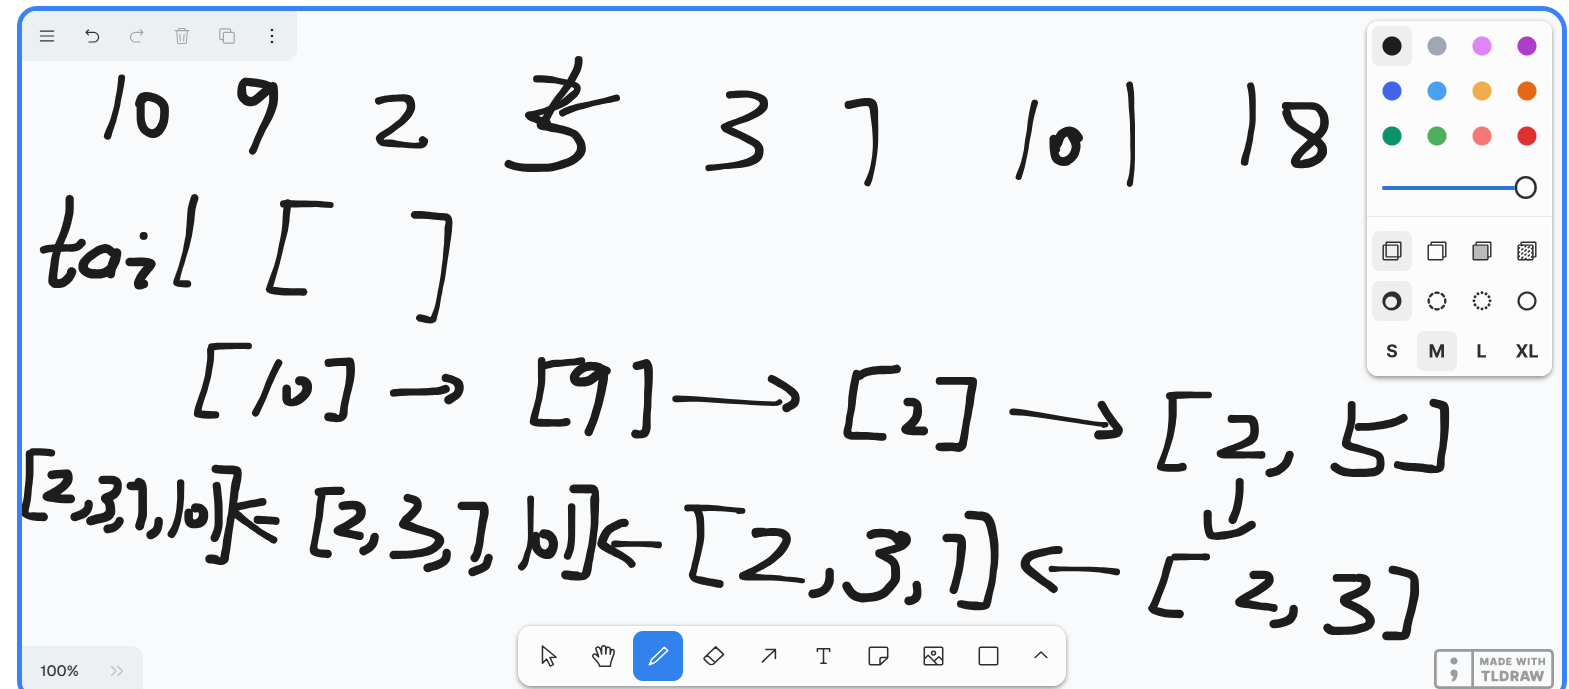 10 9 2 5 3 7 101 18
tail [ ]
[10] → [9] → [2] → [2, 5]
[2,3,7,101] ← [2,3,7,101] ← [2,3,7] ← [2,3]
S M L XL
100%
T
MADE WITH
TLDRAW